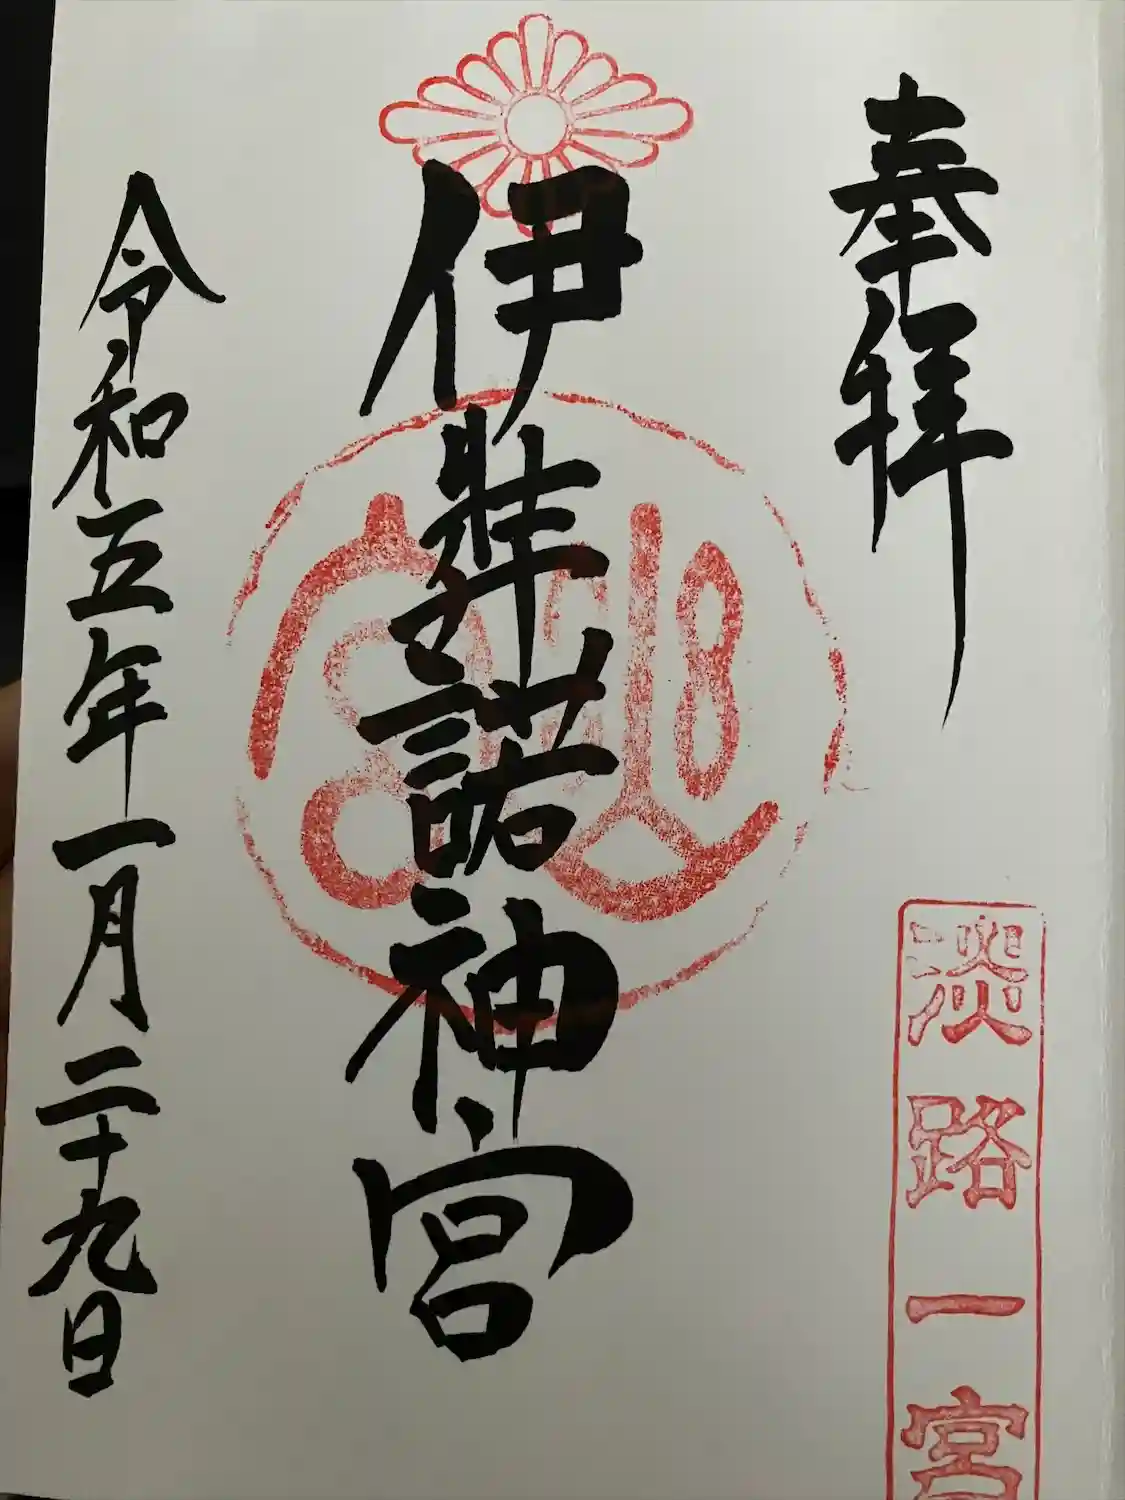 奉拝
淡路一宮
伊弉諾神宮
令和五年一月二十九日